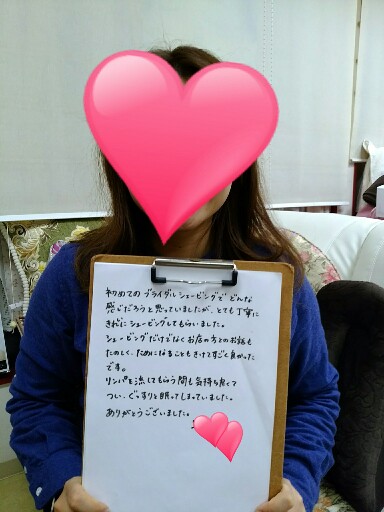 初めてのブライダルシェービングで どんな
感じだろうと思っていましたが、とても丁寧に
きれいにシェービングしてもらいました。
シェービングだけでなくお店の方とのお話も
たのしく、ためになることもきけてすごく良かった
です。
リンパを流してもらう間も気持ち良くて
つい、ぐっすりと眠ってしまっていました。
ありがとうございました。